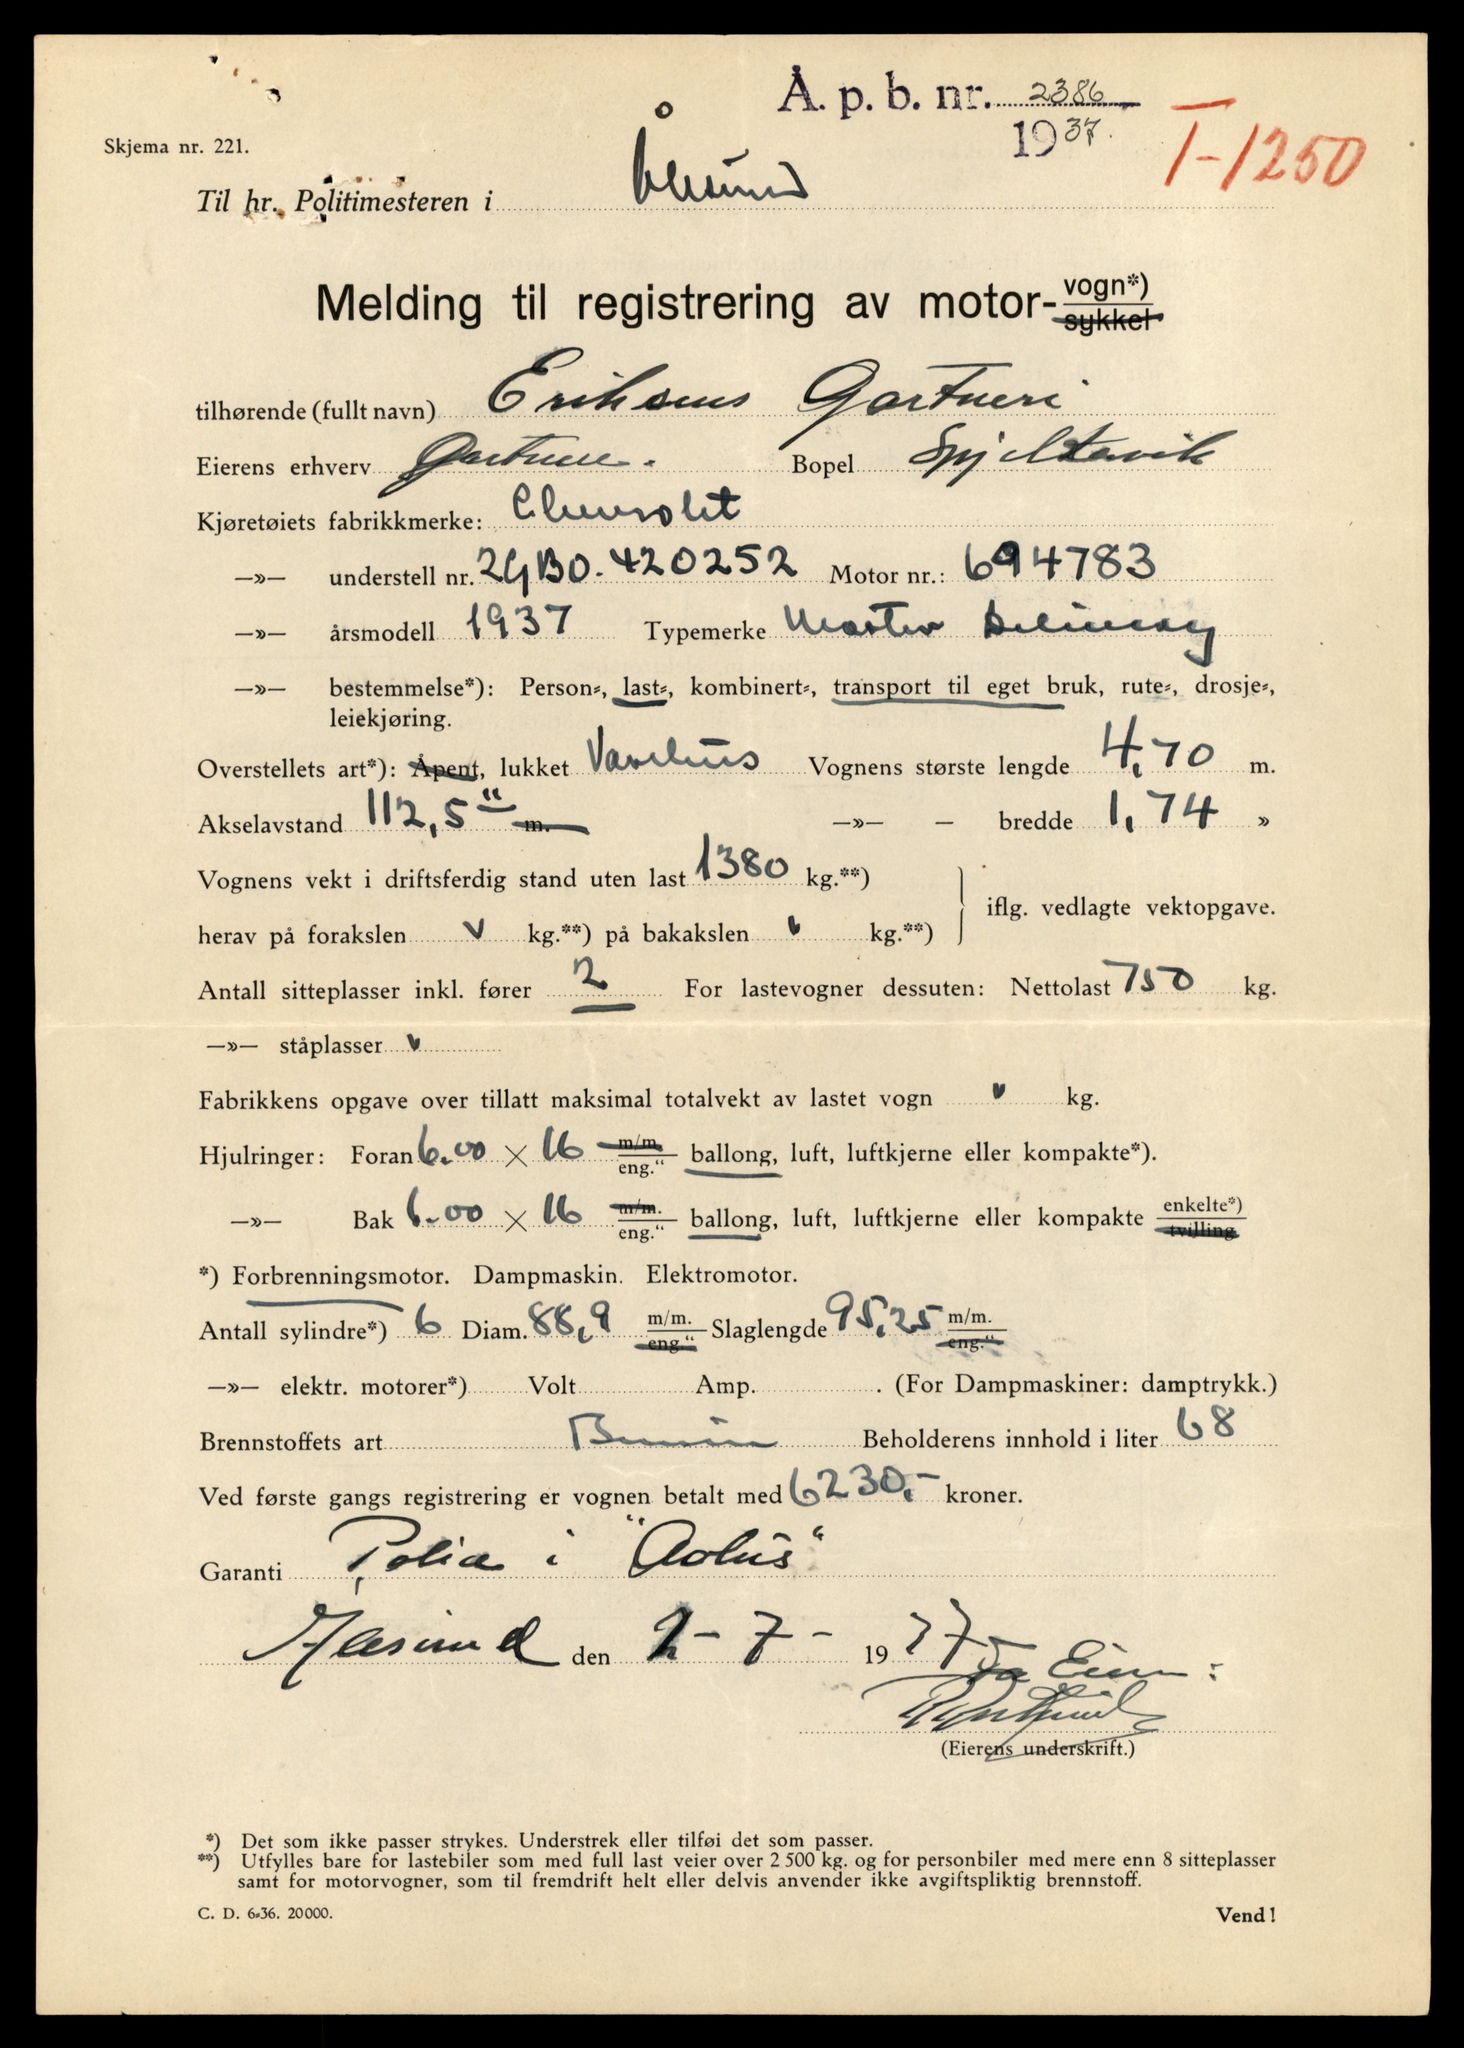 Å. p. b. nr. 2386
1937.
T-1250
Skjema nr. 221.
Til hr. Politimesteren i Ålesund
Melding til registrering av motor- vogn*)
sykkel
tilhørende (fullt navn) Eriksens Gartneri
Eierens erhverv Gartneri. Bopel Spjelkavik
Kjøretøiets fabrikkmerke: Chevrolet
—»— understell nr. 2GB0.420252 Motor nr.: 694783
—»— årsmodell 1937 Typemerke Master Delivery
—»— bestemmelse*): Person-, last-, kombinert-, transport til eget bruk, rute-, drosje-,
leiekjøring.
Overstellets art*): Åpent, lukket Varehus Vognens største lengde 4,70 m.
Akselavstand 112,5" m. —»— — bredde 1,74 »
Vognens vekt i driftsferdig stand uten last 1380 kg.**)
iflg. vedlagte vektopgave.
herav på forakslen v kg.**) på bakakslen v kg.**)
Antall sitteplasser inkl. fører 2 For lastevogner dessuten: Nettolast 750 kg.
—»— ståplasser v
Fabrikkens opgave over tillatt maksimal totalvekt av lastet vogn v kg.
Hjulringer: Foran 6.00 × 16 m/m. eng.“ ballong, luft, luftkjerne eller kompakte*).
—»— Bak 6.00 × 16 m/m. eng.“ ballong, luft, luftkjerne eller kompakte enkelte*) tvilling
*) Forbrenningsmotor. Dampmaskin. Elektromotor.
Antall sylindre*) 6 Diam. 88,9 m/m. eng.“ Slaglengde 95,25 m/m. eng.“
—»— elektr. motorer*) Volt Amp. . (For Dampmaskiner: damptrykk.)
Brennstoffets art Bensin Beholderens innhold i liter 68
Ved første gangs registrering er vognen betalt med 6230,- kroner.
Garanti Police i "Aolus"
Aalesund den 2-7- 1937
for Eieren:
(Eierens underskrift.)
*) Det som ikke passer strykes. Understrek eller tilføi det som passer.
**) Utfylles bare for lastebiler som med full last veier over 2 500 kg. og for personbiler med mere enn 8 sitteplasser
samt for motorvogner, som til fremdrift helt eller delvis anvender ikke avgiftspliktig brennstoff.
C. D. 6-36. 20000.
Vend!